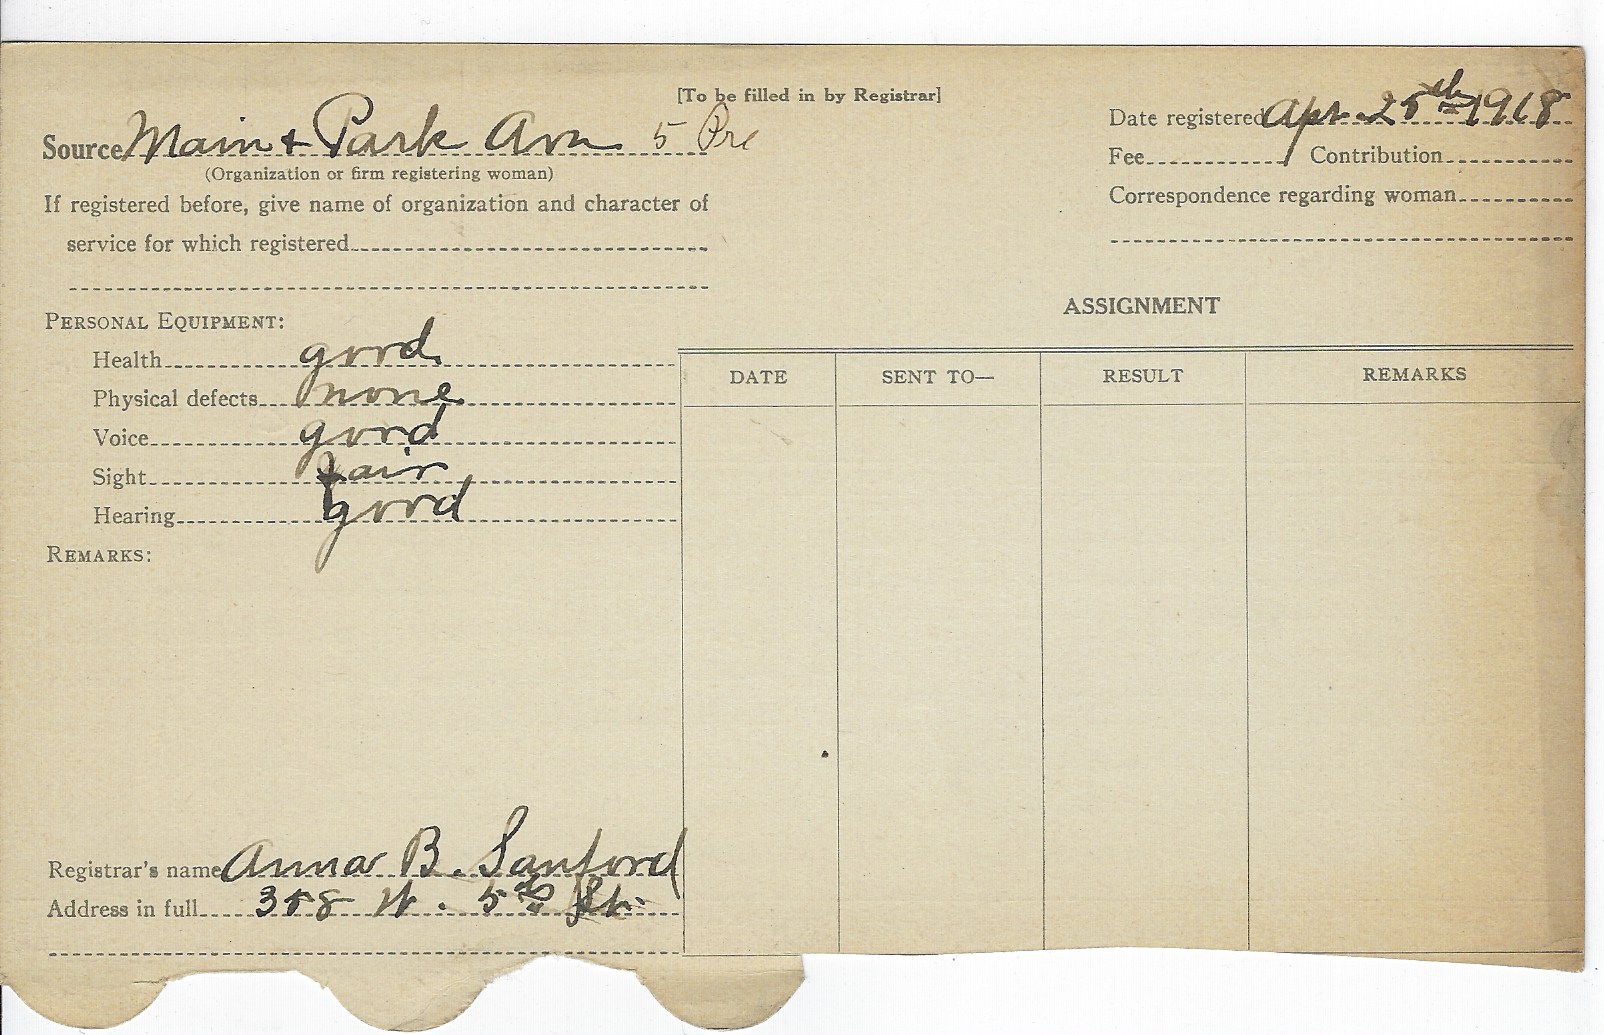 [To be filled in by Registrar]
Source Main + Park Ave 5 Pre
(Organization or firm registering woman)
If registered before, give name of organization and character of
service for which registered
Date registered Apr. 25th 1918
Fee Contribution
Correspondence regarding woman
PERSONAL EQUIPMENT:
Health good
Physical defects none
Voice good
Sight fair
Hearing good
REMARKS:
ASSIGNMENT
DATE SENT TO— RESULT REMARKS
Registrar's name Anna B. Sanford
Address in full 358 W. 5th St.